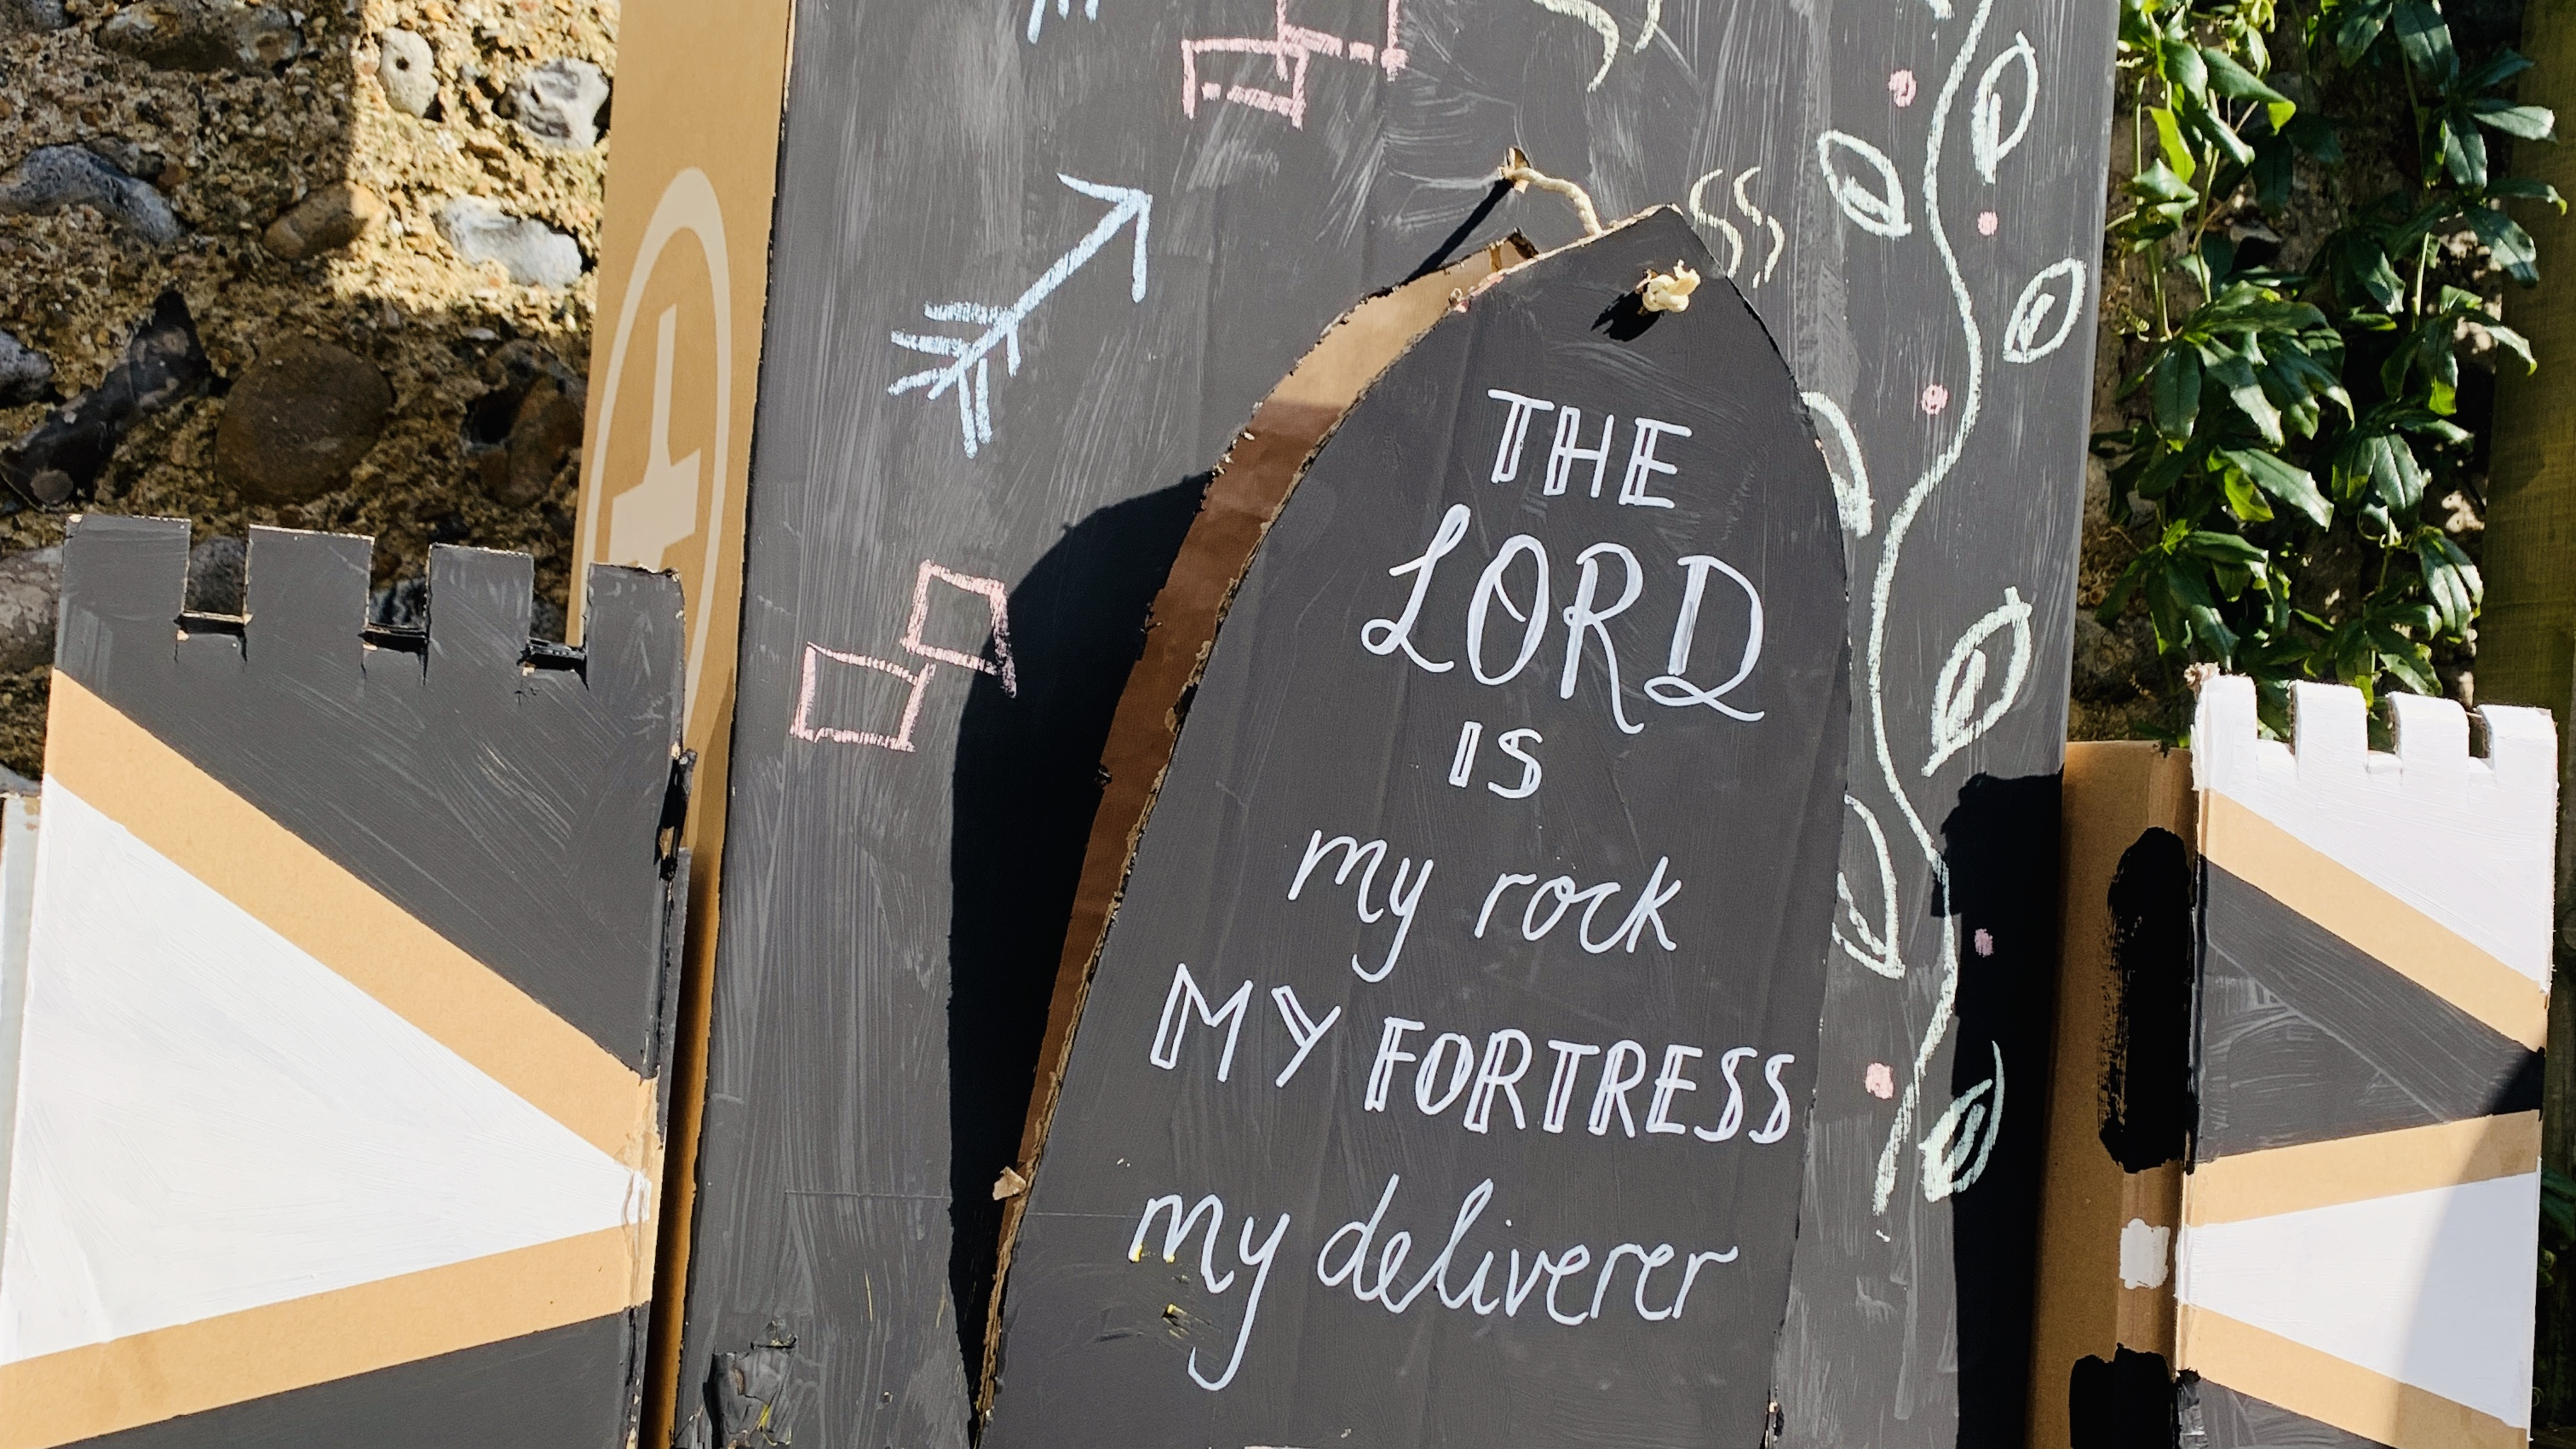 THE
LORD
IS
my rock
MY FORTRESS
my deliverer